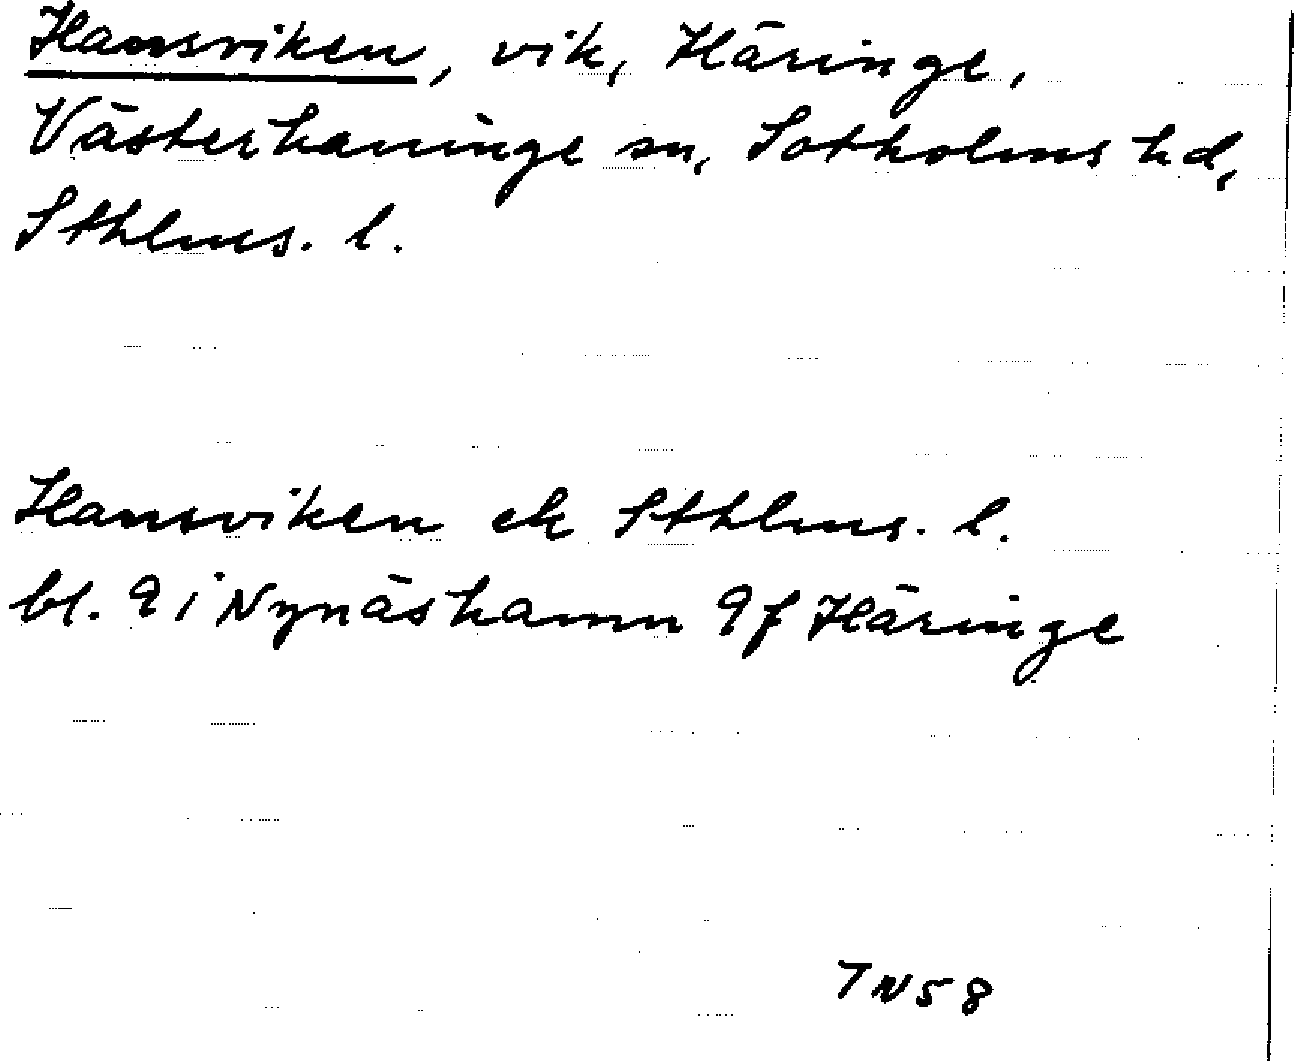 Hansviken, vik, Häringe,
Västerhaninge sn, Sotholms hd,
Sthlms. l.
Hansviken ek Sthlms. l.
bl. 9 i Nynäshamn 9f Häringe
TN58